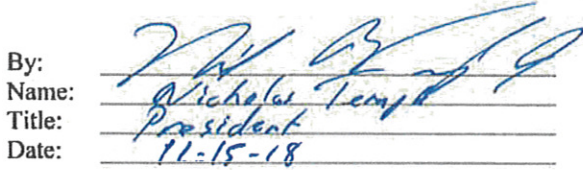 By:
Name: Nicholas Temple
Title: President
Date: 11-15-18